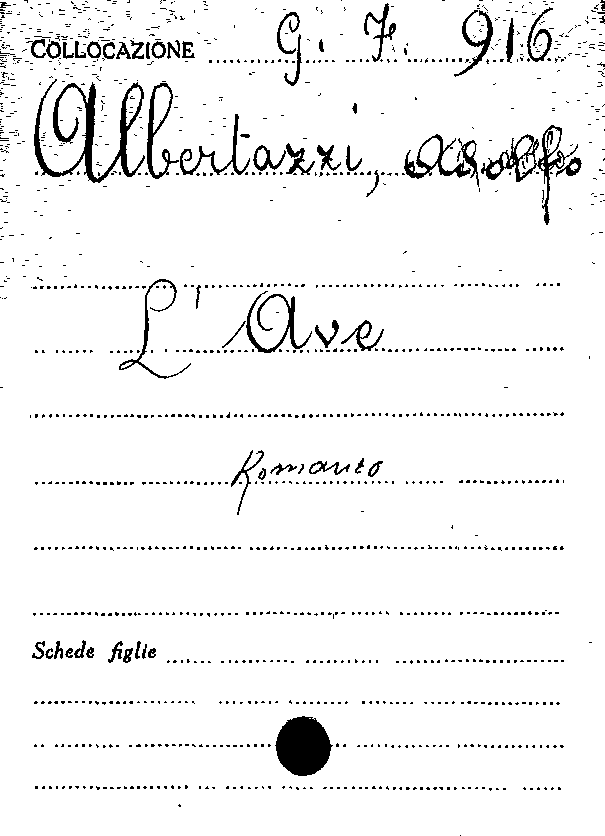 COLLOCAZIONE G. F. 916
Albertazzi, Adolfo
L' Ave
Romanzo
Schede figlie